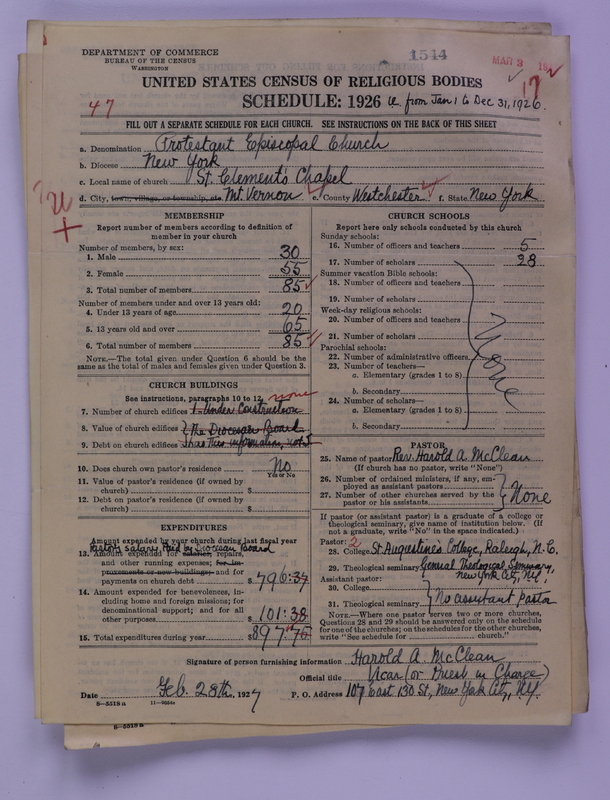 DEPARTMENT OF COMMERCE
BUREAU OF THE CENSUS
WASHINGTON
1544
MAR 9
17
UNITED STATES CENSUS OF RELIGIOUS BODIES
SCHEDULE: 1926 ie. from Jan 1 to Dec 31, 1926.
47
FILL OUT A SEPARATE SCHEDULE FOR EACH CHURCH. SEE INSTRUCTIONS ON THE BACK OF THIS SHEET
a. Denomination Protestant Episcopal Church
b. Diocese New York
c. Local name of church St. Clement's Chapel
d. City, town, village, or township, etc. Mt. Vernon e. County Westchester f. State New York
MEMBERSHIP
Report number of members according to definition of
member in your church
Number of members, by sex:
1. Male 30
2. Female 55
3. Total number of members 85
Number of members under and over 13 years old:
4. Under 13 years of age 20
5. 13 years old and over 65
6. Total number of members 85
NOTE.—The total given under Question 6 should be the
same as the total of males and females given under Question 3.
CHURCH BUILDINGS
See instructions, paragraphs 10 to 12 none
7. Number of church edifices 1 Under Construction
8. Value of church edifices The Diocesan Board
9. Debt on church edifices has this information, not I
10. Does church own pastor's residence No
Yes or No
11. Value of pastor's residence (if owned by
church) $
12. Debt on pastor's residence (if owned by
church) $
EXPENDITURES
Amount expended by your church during last fiscal year
Pastor's salary Paid by Diocesan Board
13. Amount expended for salaries, repairs,
and other running expenses; for im-
provements or new buildings; and for
payments on church debt $ 796:37
14. Amount expended for benevolences, in-
cluding home and foreign missions; for
denominational support; and for all
other purposes $ 101:38
15. Total expenditures during year $ 897.75
CHURCH SCHOOLS
Report here only schools conducted by this church
Sunday schools:
16. Number of officers and teachers 5
17. Number of scholars 28
Summer vacation Bible schools:
18. Number of officers and teachers
19. Number of scholars
Week-day religious schools:
20. Number of officers and teachers
21. Number of scholars
Parochial schools:
22. Number of administrative officers
23. Number of teachers—
a. Elementary (grades 1 to 8)
b. Secondary
24. Number of scholars—
a. Elementary (grades 1 to 8)
b. Secondary
None
PASTOR
25. Name of pastor Rev. Harold A. McClean
(If church has no pastor, write "None")
26. Number of ordained ministers, if any, em-
ployed as assistant pastors
27. Number of other churches served by the
pastor or his assistants
None
If pastor (or assistant pastor) is a graduate of a college or
theological seminary, give name of institution below. (If
not a graduate, write "No" in the space indicated.)
Pastor: 2
28. College St. Augustine's College, Raleigh, N.C.
29. Theological seminary General Theological Seminary,
New York City, N.Y.
Assistant pastor:
30. College
31. Theological seminary
No assistant Pastor
NOTE.—Where one pastor serves two or more churches,
Questions 28 and 29 should be answered only on the schedule
for one of the churches; on the schedule for the other churches,
write "See schedule for church."
Signature of person furnishing information Harold A. McClean
Official title Vicar (or Priest in Charge)
Date Feb. 28th, 1927 P. O. Address 107 East 130 St, New York City, N.Y.
8—5518a 11—9554a
8—5518a